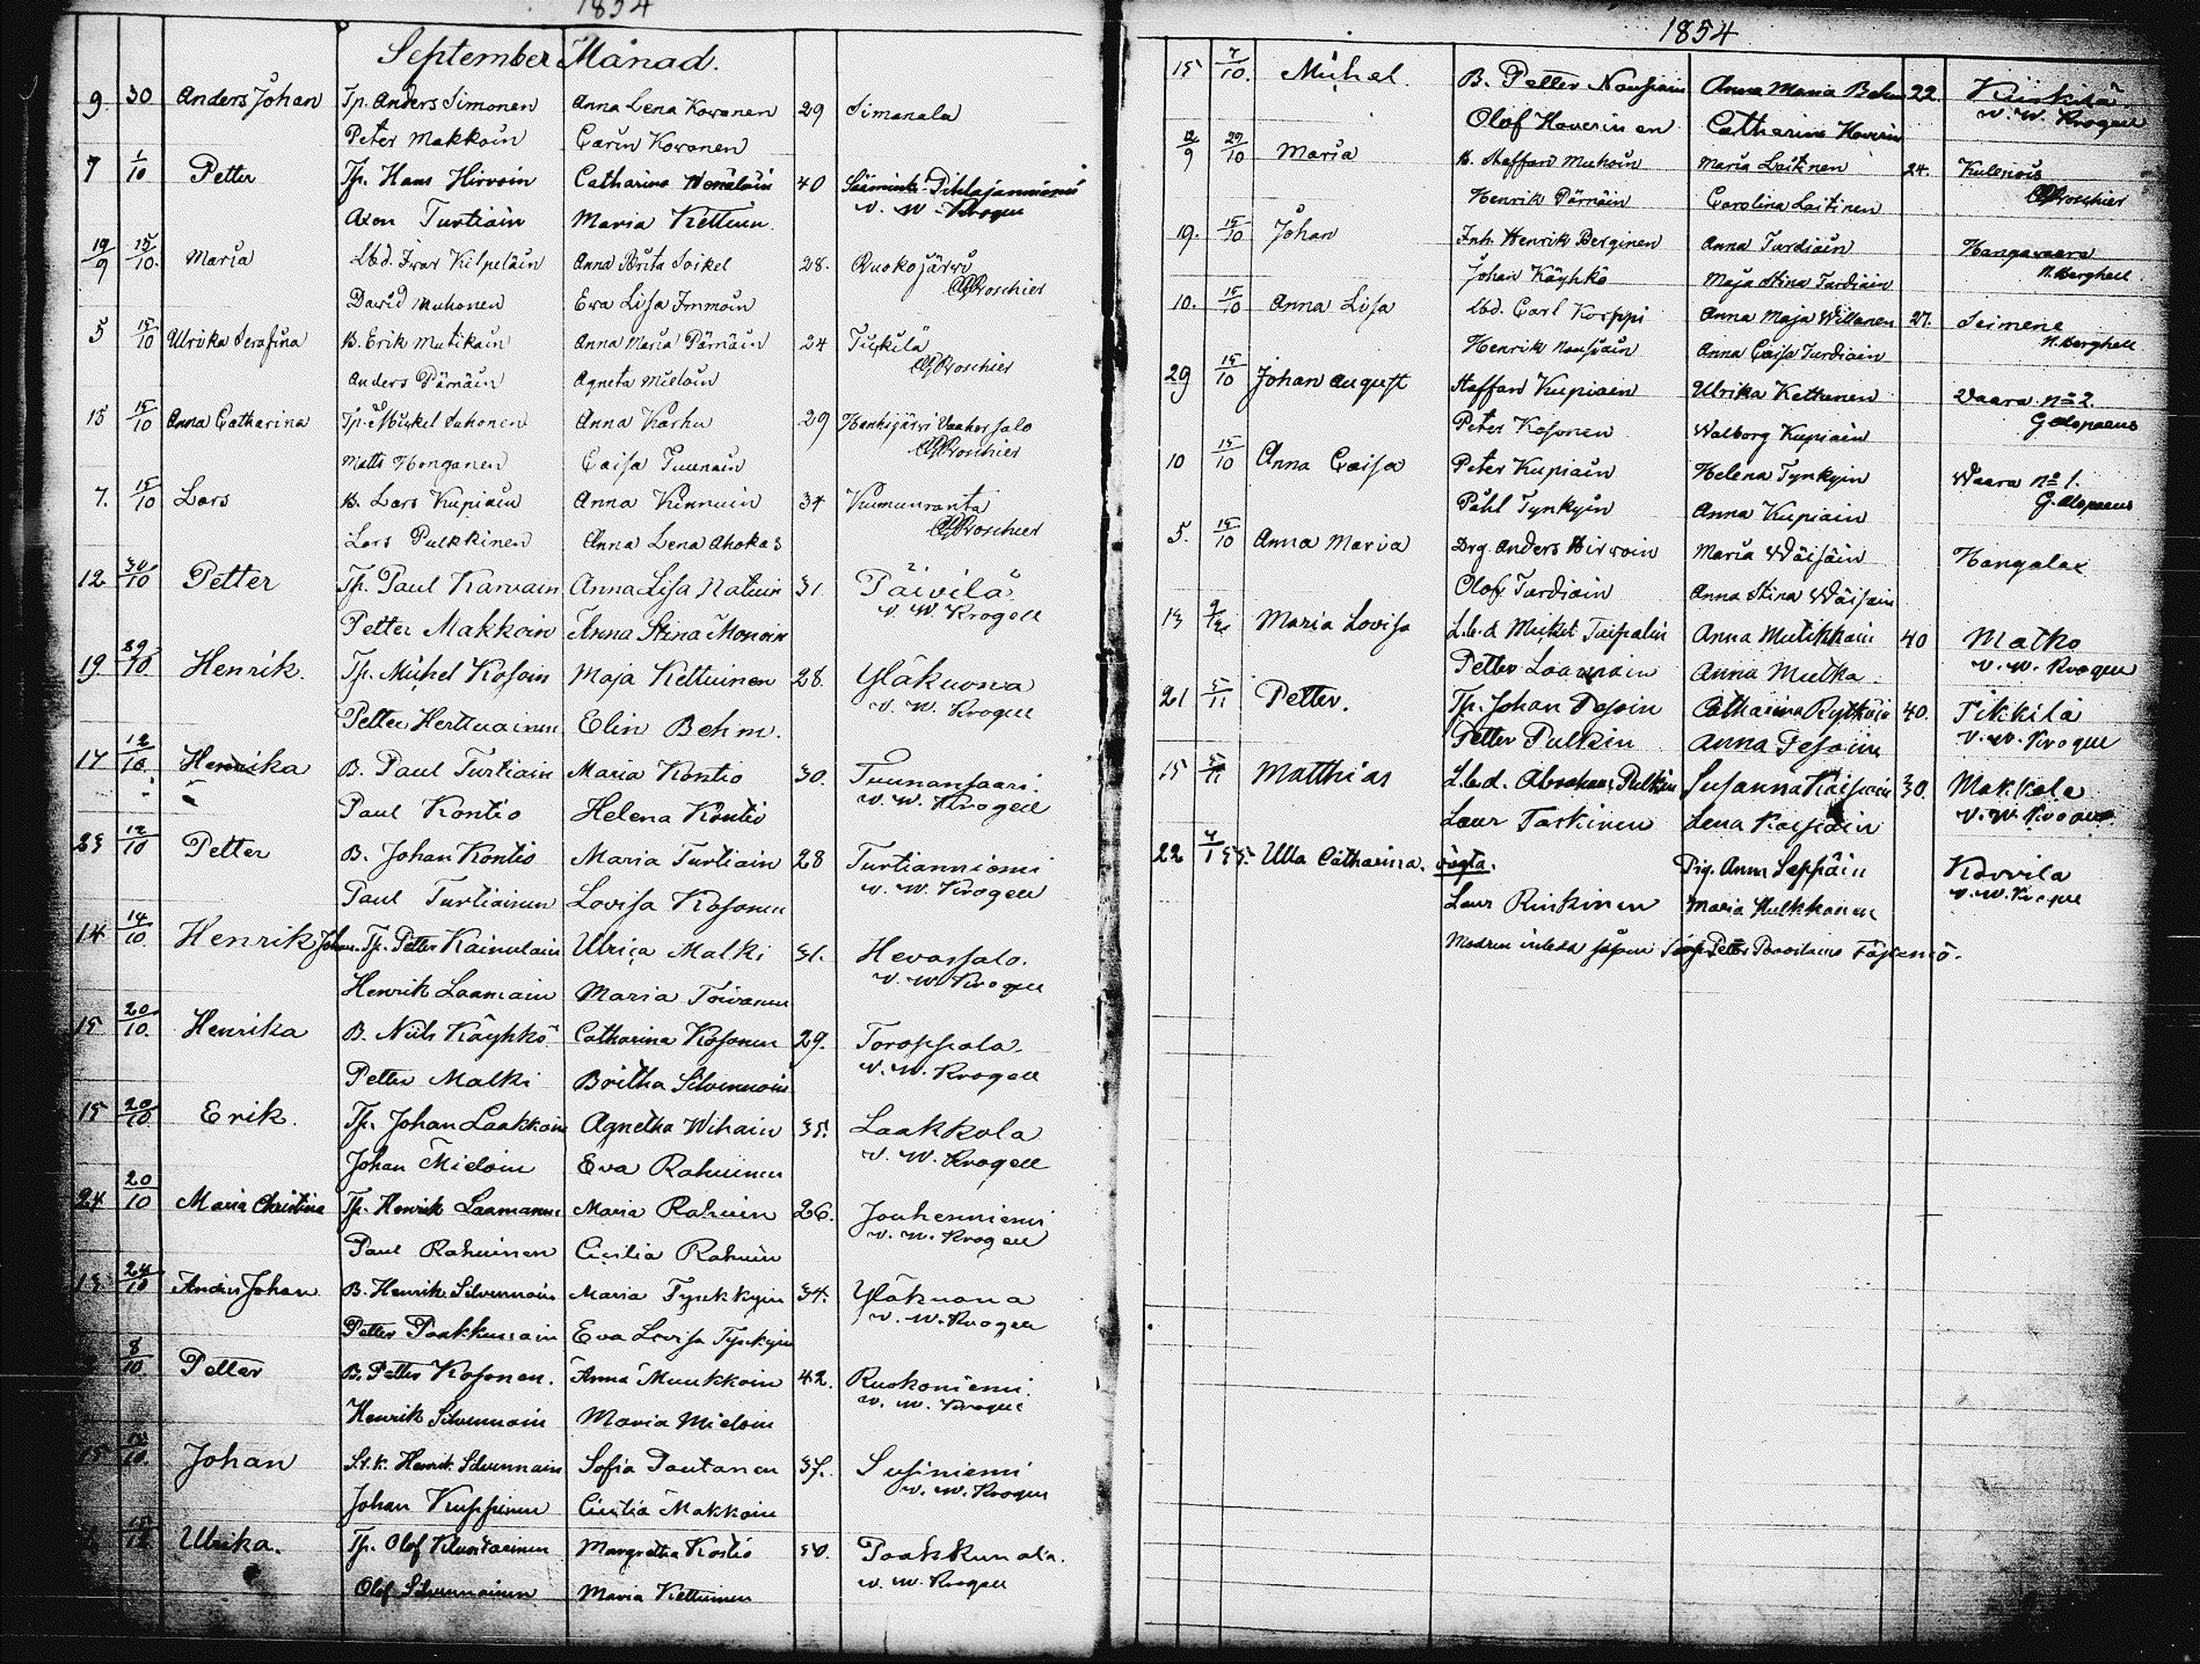 1854
September Månad.
9. 30 Anders Johan Tp. Anders Simonen Anna Lena Kowanen 29 Simanala
Peter Makkoin Carin Kowanen
7 1/10 Petter Tp. Hans Hirvoin Catharina 40 Pihlajanniemi
Turtiain Maria Kettuin v. W. Krogell
19/9 15/10. Maria Lbd. Ivar Kilpeläin Anna Brita Soikel 28. Ruokojärwi
David Muhonen Ewa Lisa Immoin Broschier
5 15/10 Ulrika Serafina B. Erik Mutikain Anna Maria Pärnäin 24
Anders Pärnäin Agneta Mieloin Broschier
15 15/10 Anna Catharina Tp. Mickel Suhonen Anna Karhu 29
Matts Honganen Caisa Tuunain Broschier
7. 15/10 Lars B. Lars Kupiain Anna Kinnuin 34 Kumunranta
Lars Pulkkinen Anna Lena Ahokas Broschier
12 30/10 Petter Tp. Paul Karvain Anna Lisa Natuin 31 Päivilä
Petter Makkoin Anna Stina Monoin v. W. Krogell
19. 29/10. Henrik. Tp. Michel Kosoin Maja Kettuinen 28. Yläkuona
Petter Herttuainen Elin Behm. v. W. Krogell
17 12/10. Henrika B. Paul Turtiain Maria Kontio 30. Tuunansaari.
Paul Kontio Helena Kontio v. W. Krogell
23 12/10 Petter B. Johan Kontio Maria Turtiain 28 Turtianniemi
Paul Turtiainen Lovisa Kosonen v. W. Krogell
14 14/10 Henrik Johan. Tp. Petter Kainulain Ulrica Malki 31. Hevossalo.
Henrik Laamain Maria Toivanen v. W. Krogell
15 20/10. Henrika B. Nils Käyhkö Catharina Kosonen 29. Toroppala.
Petter Malki Britha Silvennoin v. W. Krogell
15 20/10 Erik. Tp. Johan Laakkoin Agnetha Wihain 35. Laakkola
Johan Mieloin Eva Rahuinen v. W. Krogell
24 20/10 Maria Christina Tp. Henrik Laamanen Maria Rahuin 26. Jouhenniemi
Paul Rahuinen Cicilia Rahuin v. W. Krogell
13. 24/10 Anders Johan B. Henrik Silvennoin Maria Tynkkyin 34. Yläkuona
Petter Paakkunain Eva Lovisa Tynkyin v. W. Krogell
8/10. Petter B. Petter Kosonen. Anna Muukkoin 42. Ruokoniemi.
Henrik Silvennoin Maria Mieloin v. W. Krogell
15 10. Johan Henrik Silvennoin Sofia Pautanen 37. Susiniemi
Johan Kuppinen Cicilia Makkoin v. W. Krogell
Ulrika. Tp. Olof Margretha Kontio 30. Paakkunala.
Olof Silvennoinen Maria Kettuinen v. W. Krogell
1854
15 7/10. Michel. B. Petter Nousiain Anna Maria Behm 22. Kiiskilä
Olof Haverinen Catharina Haverin v. W. Krogell
12/9 29/10 Maria B. Staffan Muhoin Maria Laitinen 24. Kulenois
Henrik Pärnäin Carolina Laitinen Broschier
19. 15/10 Johan Inh. Henrik Berginen Anna Turdiain Hangavaara
Johan Käyhkö Maja Stina Turdiain N. Berghell
10. 15/10 Anna Lisa Lbd. Carl Korppi Anna Maja Willanen 27. Simene
Henrik Nousiain Anna Caisa Turdiain N. Berghell
29 15/10 Johan August Staffan Kupiaen Ulrika Kettunen Vaara No 2.
Peter Kosonen Walborg Kupiain G. Alopaeus
10 15/10 Anna Caisa Peter Kupiain Helena Tynkyin Waara No 1.
Påhl Tynkyin Anna Kupiain G. Alopaeus
5. 15/10 Anna Maria Drg. Anders Hirvoin Maria Wäisäin Kangalax
Olof Turdiain Anna Stina Wäisäin
13 Maria Lovisa L.b.d Mickel Taipalin Anna Mutikkain 40 Matko
Petter Laamain Anna Mutka. v. W. Krogell
21 5/11 Petter. Tp. Johan Pesoin Catharina Rytköin 40. Pikkilä
Petter Pulkin Anna Pesoin v. W. Krogell
15 5/11 Matthias L.b.d. Abraham Pulkin Susanna Kaisiain 30. Makkola
Laur Taskinen Lena Kaisiain v. W. Krogell
22 4/1 55. Ulla Catharina. oägta. Pig. Anna Seppäin Kivvila
Laur Rinkinen Maria Hulkkonen v. W. Krogell
Modren